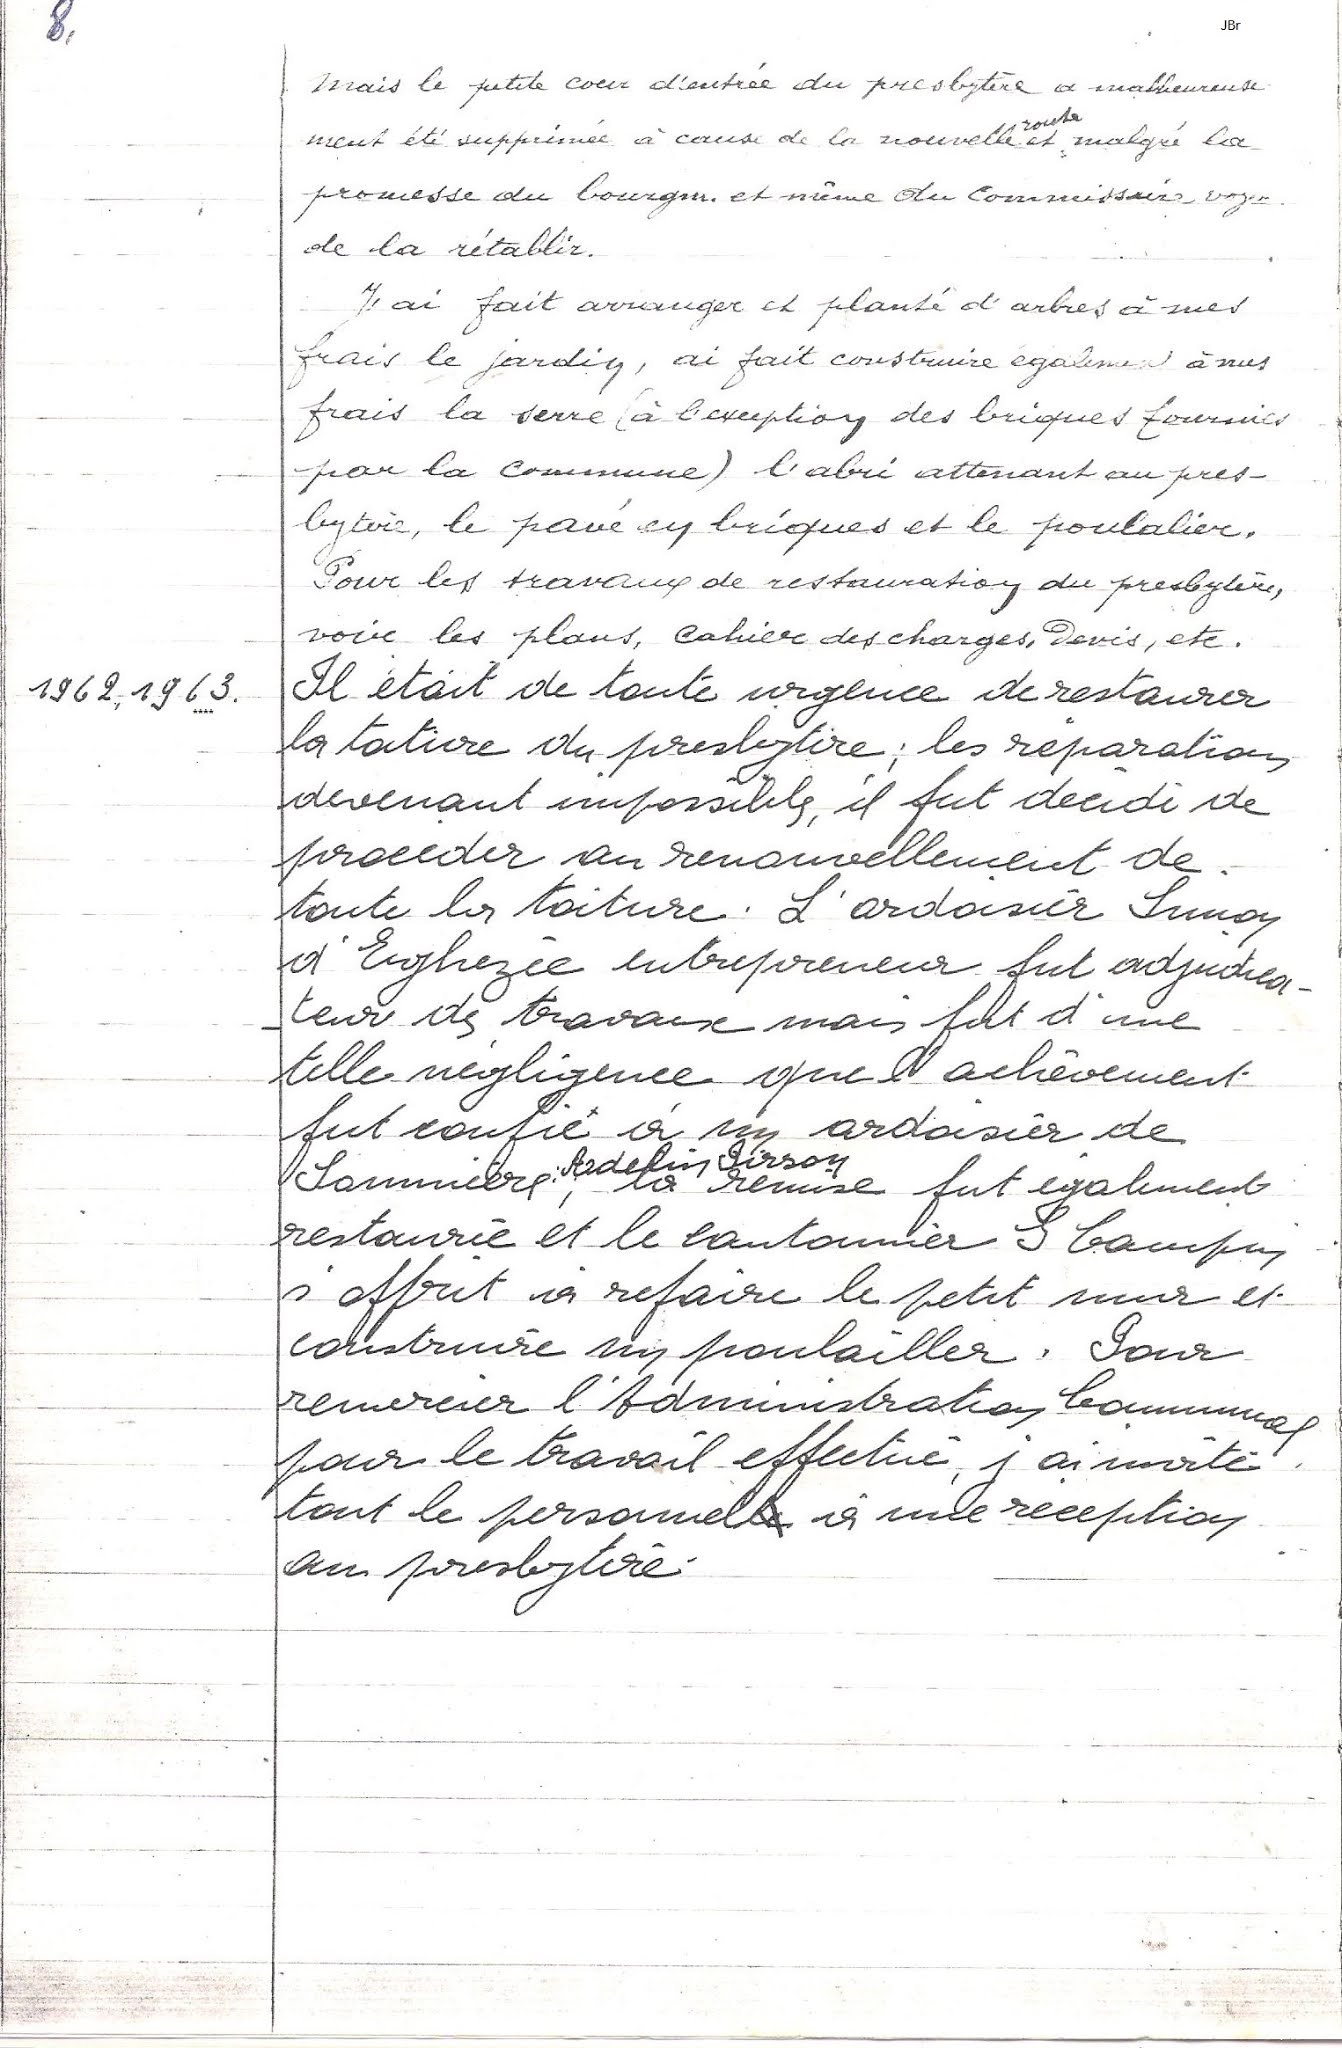 8.
JBr
Mais le petite cour d'entrée du presbytère a malheureuse
ment été supprimée à cause de la nouvelle route et malgré la
promesse du bourgm. et même du Commissaire voyer
de la rétablir.
J'ai fait arranger et planté d'arbres à mes
frais le jardin, ai fait construire également à mes
frais la serre (à l'exception des briques fournies
par la Commune) l'abri attenant au pres-
bytère, le pavé en briques et le poulalier.
Pour les travaux de restauration du presbytère,
voir les plans, Cahier des charges, Devis, etc.
1962, 1963. Il était de toute urgence de restaurer
la toiture du presbytère; les réparations
devenant impossibles, il fut décidé de
procéder au renouvellement de
toute la toiture. L'ardoisier Simon
d'Eghezée entrepreneur fut adjudica-
teur des travaux mais fut d'une
telle négligence que l'achèvement
fut confié à un ardoisier de
Sommière: Adelin Pirson, la remise fut également
restaurée et le cantonnier G Campin
s'offrit à refaire le petit mur et
construire un poulailler. Pour
remercier l'Administration Communal
pour le travail effectué, j'ai invité
tout le personnel à une réception
au presbytère.